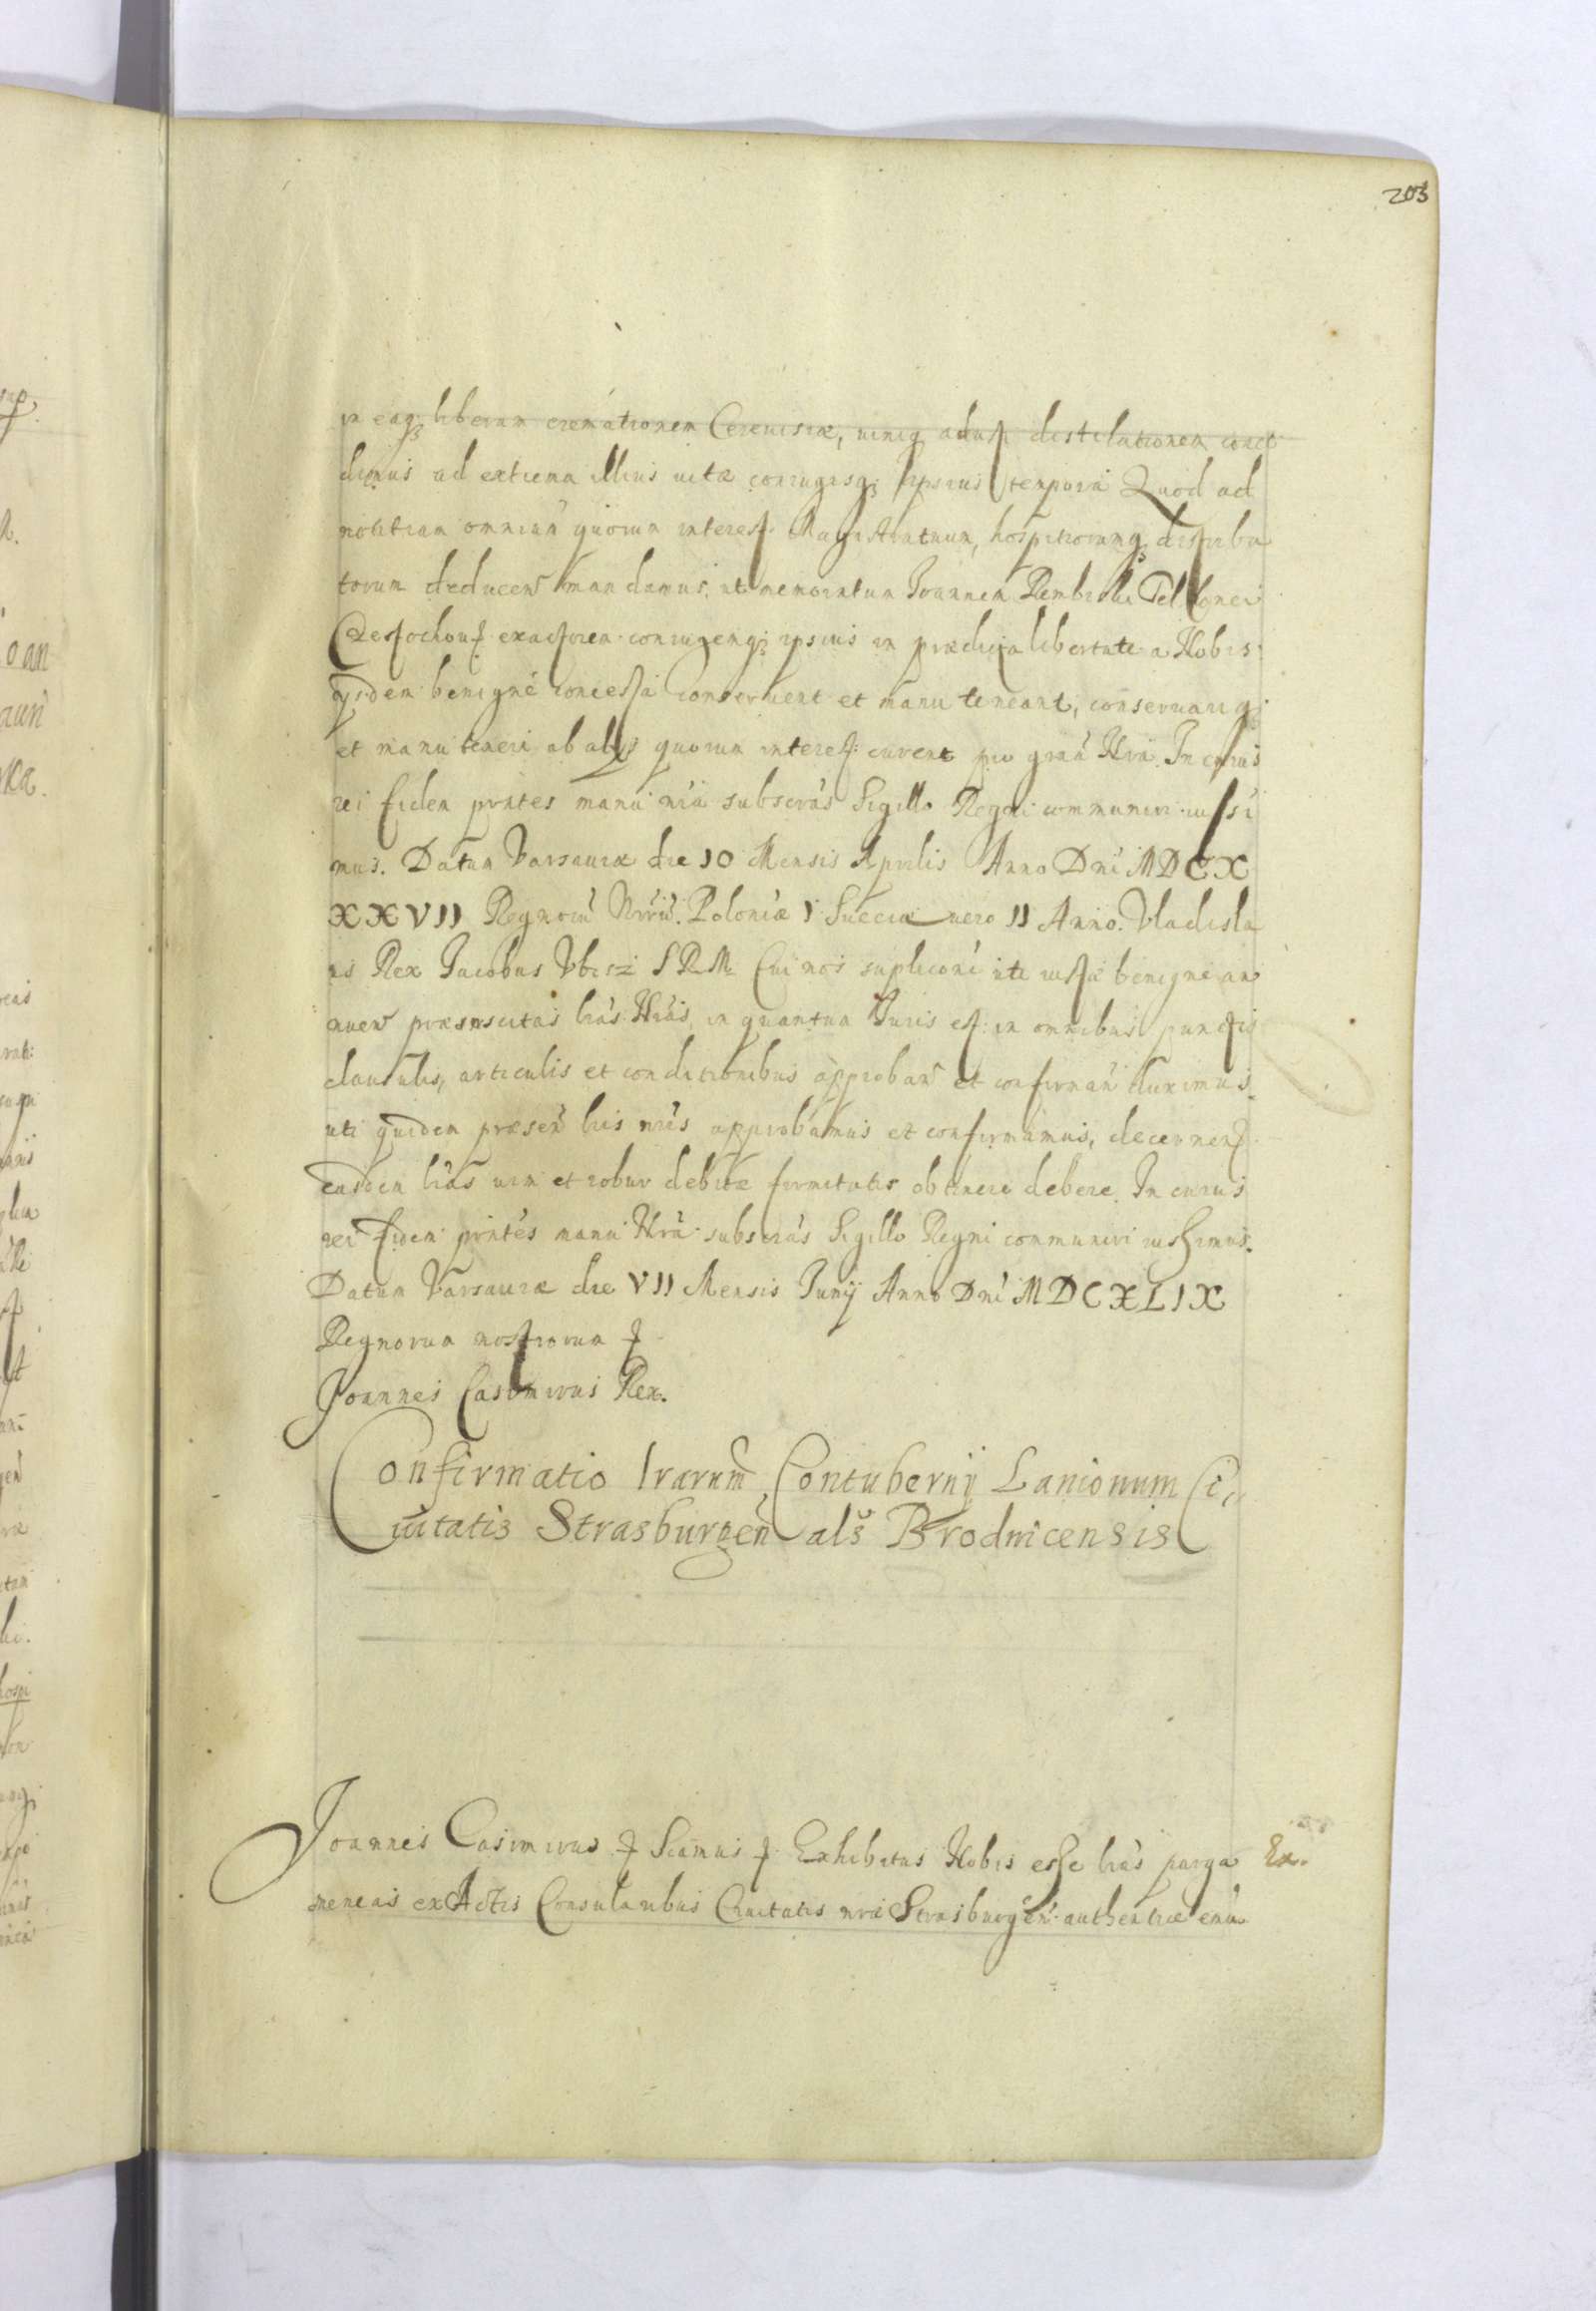 203
in eaq3 liberam cremationem Cereuisiæ, viniq3 adusti distilationem conce
dimus ad extrema illius vitæ coniugisq3 ipsius tempora Quod ad
notitiam omniũ quorum interest Magistratuum, hospitiorumq3 distribu
torum deducen mandamus, ut memoratum Joannem Telonei
Czestochouꝭ exactorem coniugemq3 ipsius in prædicta libertate a Nobis
ijsdem benigné concessa conseruent et manu teneant, conseruariq3
et manu teneri ab alijs quorum interest curent pro grãa Nrã. In cuius
rei fidem prntes manu nrã subscras Sigillo Regni communiri iussi
mus. Datum Varsauiæ die 10 Mensis Aprilis Anno Dni MDCX
XXVII Regnorũ Nrorũ Poloniæ Sueciæ vero Anno. Vladisla
us Rex Jacobus SRM Cui nos suplicõni uti iustæ benigne an
nuen præinsertas lras Nras, in quantum Juris est in omnibus punctis
clausulis, articulis et conditionibus approban et confirman duximus
uti quidem præsen lris nris approbamus et confirmamus, decernenꝭ
easdem lras vim et robur debitæ firmitatis obtinere debere. In cuius
rei fidem prntes manu Nra subscras Sigillo Regni communiri iussimus.
Datum Varsauiæ die VII Mensis Junij Anno Dni MDCXLIX
Regnorum nostrorum ꝭ
Joannes Casimirus Rex.
Confirmatio lrarum Contubernij Lanionum Ci„
uitatis Strasburgen als Brodnicensis
Joannes Casimirus ꝭ Scimus ꝭ Exhibitas Nobis esse lras parga
Ex.
meneas ex Actis Consularibus Ciuitatis nræ Strasburgen authentice emã